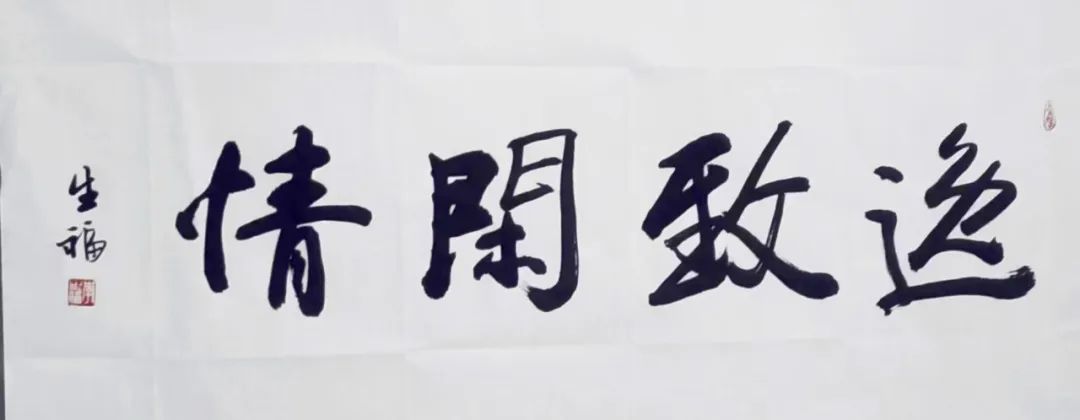 逸致閑情
生福